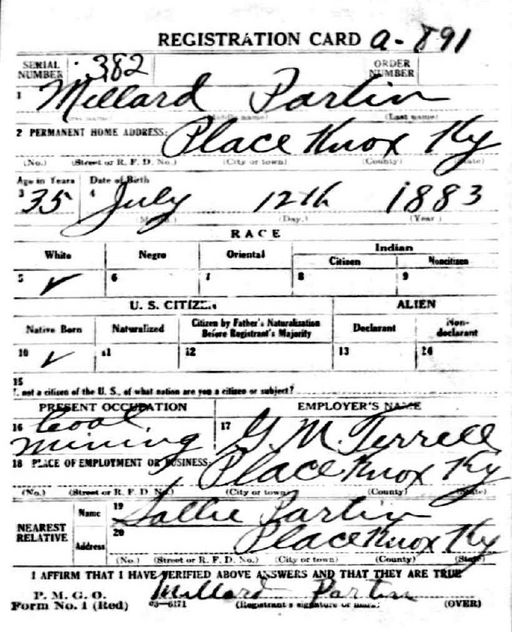 REGISTRATION CARD a-891
SERIAL NUMBER 382 ORDER NUMBER
1 Millard Partin
(Last name)
2 PERMANENT HOME ADDRESS: Place Knox Ky
(No.) (Street or R. F. D. No.) (City or town) (County) (State)
Age in Years Date of Birth
3 35 4 July 12th 1883
(Month.) (Day.) (Year.)
RACE
White Negro Oriental Indian
Citizen Noncitizen
5 ✓ 6 7 8 9
U. S. CITIZEN ALIEN
Native Born Naturalized Citizen by Father's Naturalization Before Registrant's Majority Declarant Non-declarant
10 ✓ 11 12 13 14
15
If not a citizen of the U. S., of what nation are you a citizen or subject?
PRESENT OCCUPATION EMPLOYER'S NAME
16 Coal mining 17 G. M. Terrell
18 PLACE OF EMPLOYMENT OR BUSINESS: Place Knox Ky
(No.) (Street or R. F. D. No.) (City or town) (County) (State)
NEAREST RELATIVE Name 19 Sallie Partin
Address 20 Place Knox Ky
(No.) (Street or R. F. D. No.) (City or town) (County) (State)
I AFFIRM THAT I HAVE VERIFIED ABOVE ANSWERS AND THAT THEY ARE TRUE
P. M. G. O.
Form No. 1 (Red) 03-6171 Millard Partin
(Registrant's signature or mark) (OVER)